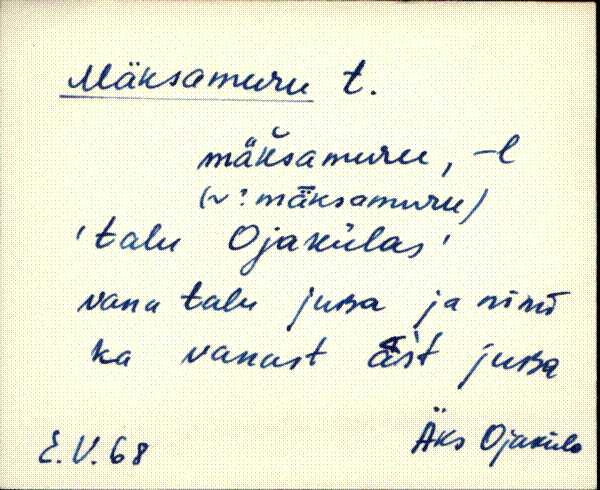 Mäksamuru t.
mäk̆samuru, -l
(~ : mǟksamuru)
'talu Ojakülas'
vana talu jussa ja nimi
ka vanast ast jussa
E.V. 68
Äks Ojaküla